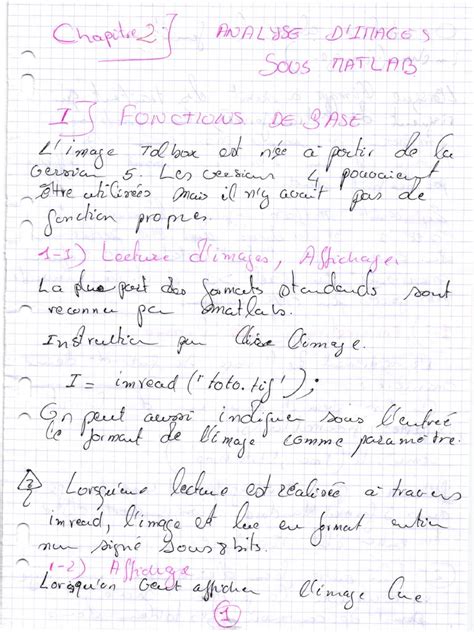 Chapitre 2:] ANALYSE D'IMAGES
SOUS MATLAB
I] FONCTIONS DE BASE
L'image Tolbox est née à partir de la
version 5. Les version 4 pouvaient
être utilisées mais il n'y avait pas de
fonction propres.
1-1) Lecture d'images, Affichages
La plus part des formats standards sont
reconnu par matlab.
Instruction pour lire l'image.
I = imread ('toto.tif');
On peut aussi indiquer sous l'entrée
le format de l'image comme paramètre.
Lorsqu'une lecture est réalisée à travers
imread, l'image est lue en format entier
non signé sous 8 bits.
1-2) Affichage
Lorsqu'on veut afficher l'image lue.
1